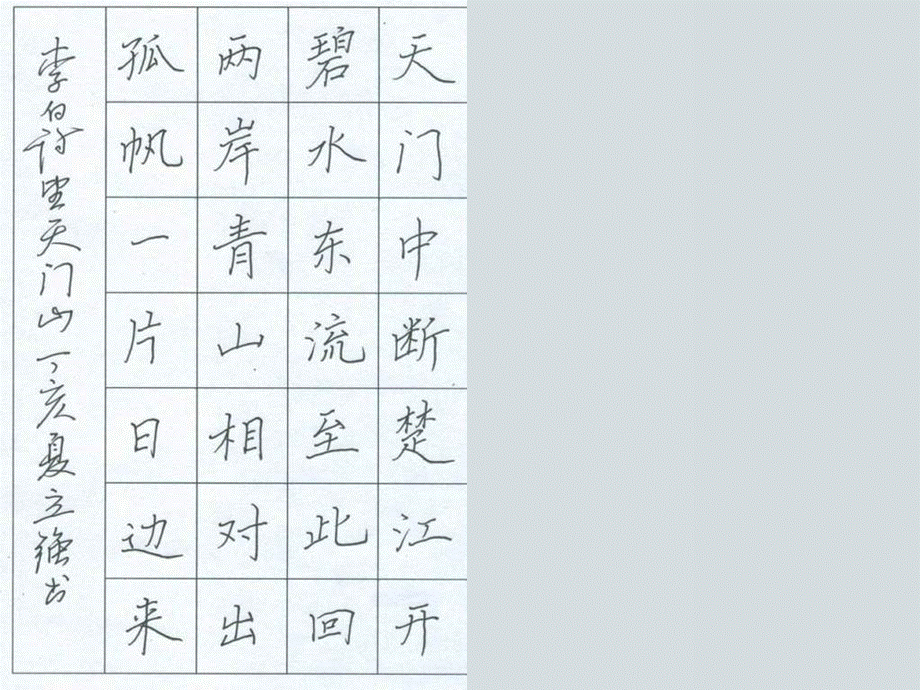 天门中断楚江开
碧水东流至此回
两岸青山相对出
孤帆一片日边来
李白诗望天门山丁亥夏立强书